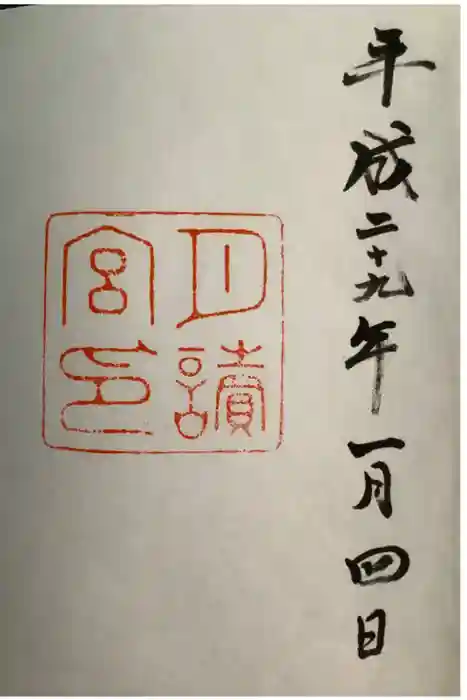 平成二十九年一月四日
月讀
宮印